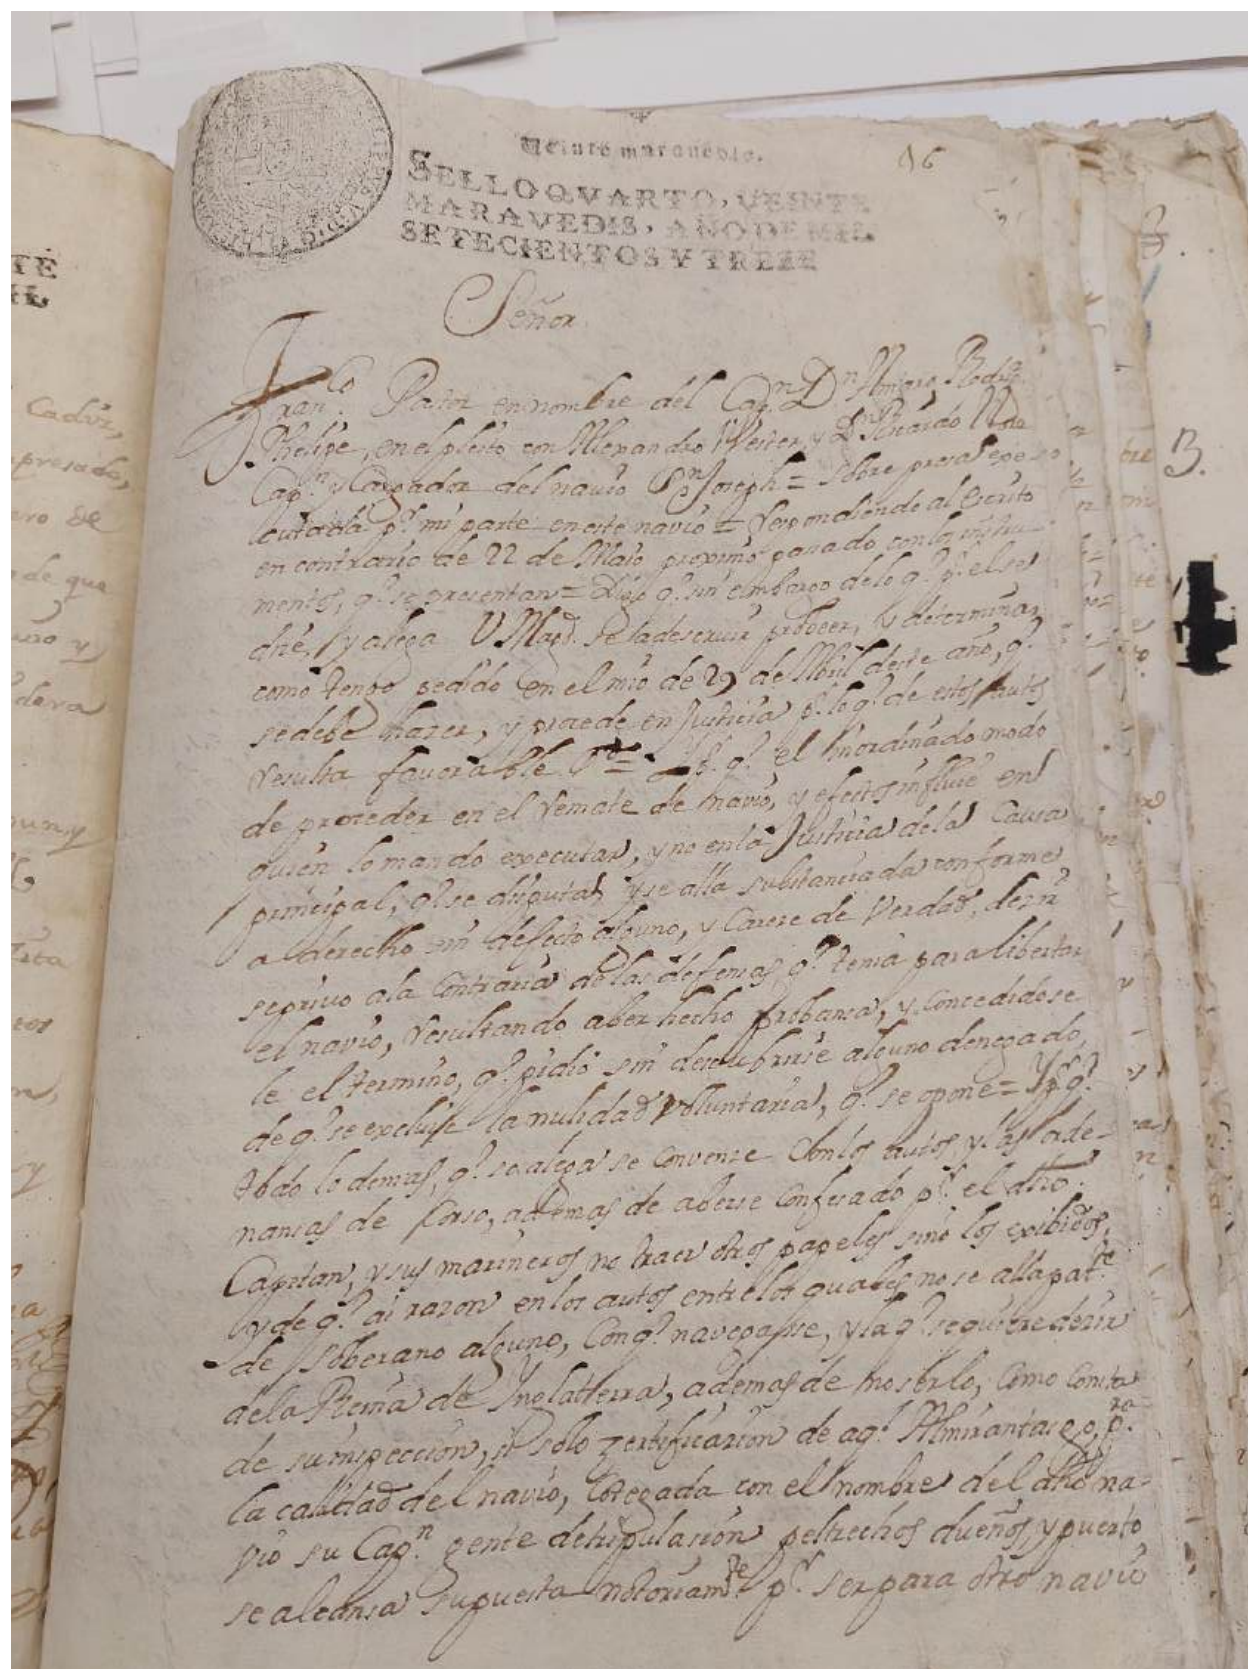 Veinte maravedis.
96
SELLO QVARTO, VEINTE
MARAVEDIS, AÑO DE MIL
SETECIENTOS Y TREZE
Señor
Fran.co Pastor en nombre del Cap.n D.n
Phelipe, en el pleito con Alexandro Wester, y D.n Ricardo
Cap.n y Cargador del navio S.n Joseph = sobre presa
cutada p.r mi parte en este navio = Respondiendo al escrito
en contrario de 22 de Maio proximo pasado con los instru-
mentos, q.e se presentan = Digo q.e sin embargo de lo q.e p.r el se
dize, y alega V Mag.d se ha de servir probeer, y determinar
como tengo pedido en el mio de 29 de Abril deste año, q.e
se debe hazer, y procede en Justicia p.r lo q.e de estos autos
resulta favorable = y p.r q.e el inordinado modo
de proceder en el remate de navio, y efectos influie en
quien lo mando executar, y no en la Justicia de la Causa
principal, q.e se disputa, y se alla substanciada conforme
a derecho sin defecto alguno, y Carece de Verdad, dezir
se privo a la Contraria de las defensas q.e tenia para libertar
el navio, resultando aber hecho probansa, y Concedidose
le el termino, q.e pidio sin descubrirse alguno denegado,
de q.e se excluie la nulidad voluntaria, q.e se opone = Y p.r q.e
todo lo demas, q.e se alega se Convense Con los autos, y las orde-
nansas de Corso, ademas de aberse Confesado p.r el dho
Capitan, y sus marineros no traer otros papeles sino los exibidos,
y de q.e ai razon en los autos entre los quales no se alla pat.te
de Soberano alguno, Con q.e navegasse, y la q.e se quiere dezir
de la Reina de Inglatierra, ademas de no serlo, como Consta
de su inspeccion, si solo zertificazion de aq.l Almirantazgo, p.ra
la calidad del navio, Cotegada con el nombre del dho na-
vio su Cap.n gente de tripulasion peltrechos dueños, y puerto
se alcansa supuesta notoriam.te p.r ser para otro navio
B.